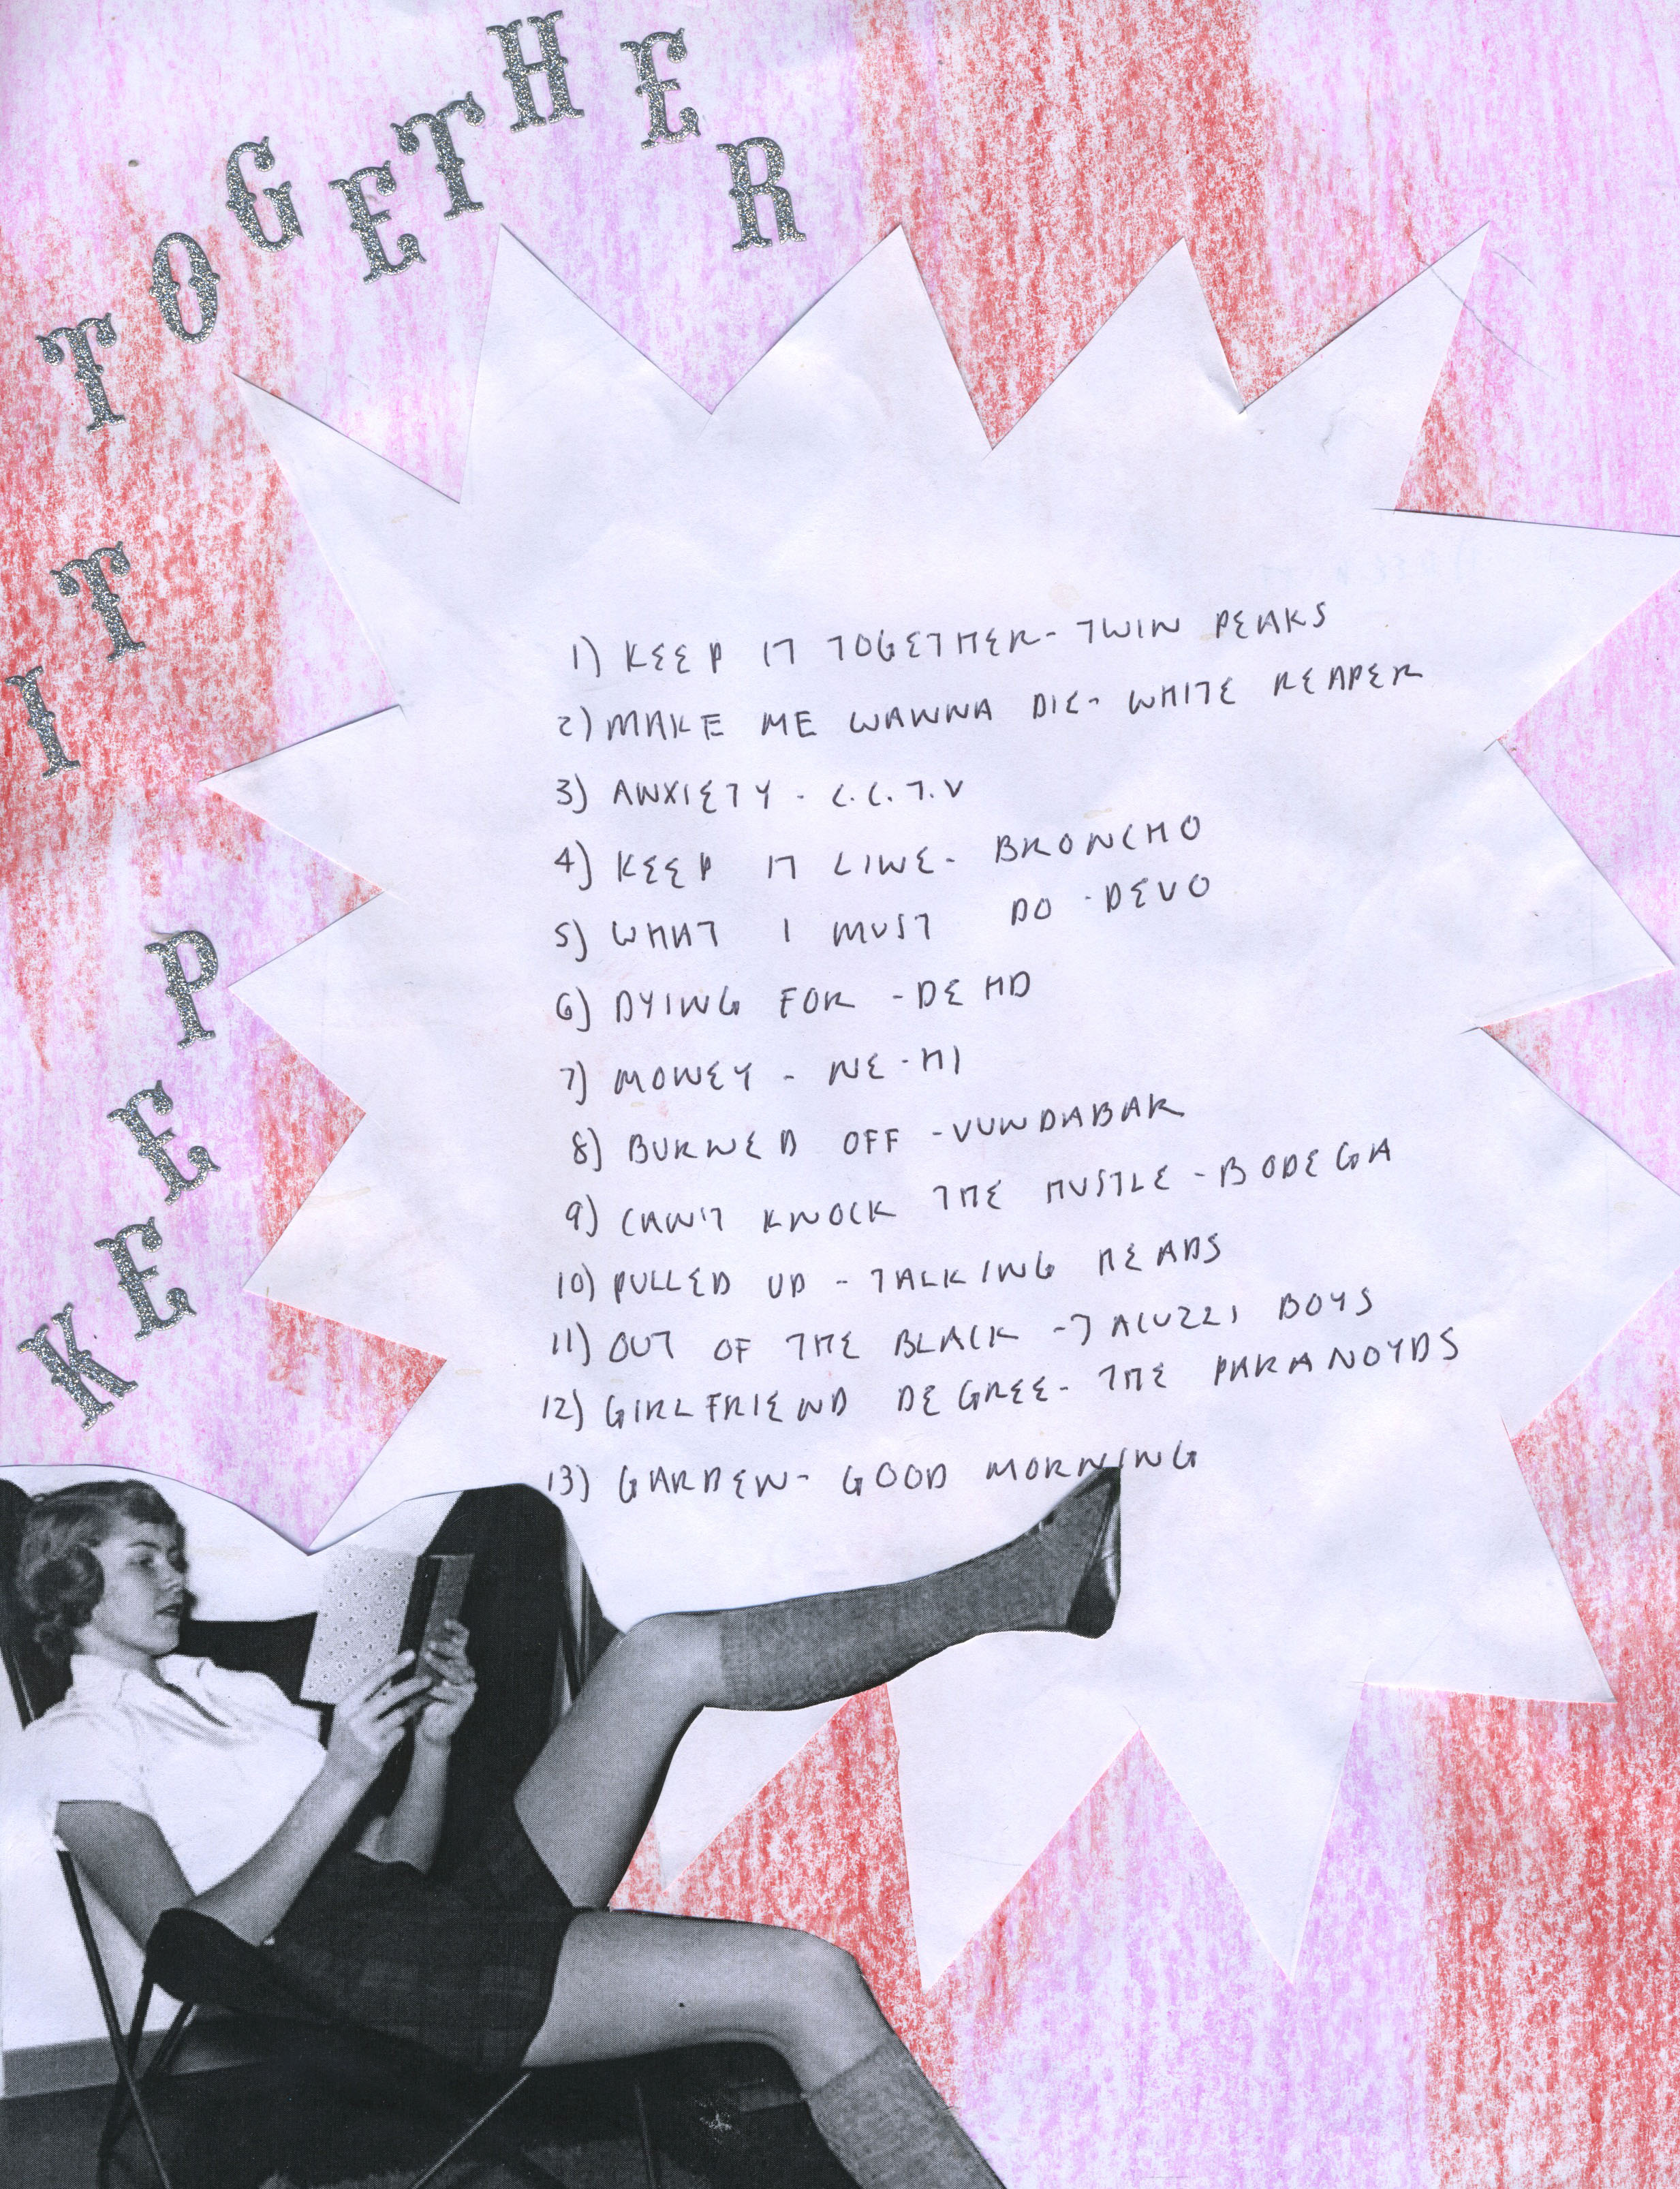 KEEP IT TOGETHER
1) KEEP IT TOGETHER - TWIN PEAKS
2) MAKE ME WANNA DIE - WHITE REAPER
3) ANXIETY - C.C.T.V
4) KEEP IT LINE - BRONCHO
5) WHAT I MUST DO - DEVO
6) DYING FOR - DEHD
7) MONEY - NE-HI
8) BURNED OFF - VUNDABAR
9) CAN'T KNOCK THE HUSTLE - BODEGA
10) PULLED UP - TALKING HEADS
11) OUT OF THE BLACK - JACUZZI BOYS
12) GIRLFRIEND DEGREE - THE PARANOYDS
13) GARDEN - GOOD MORNING